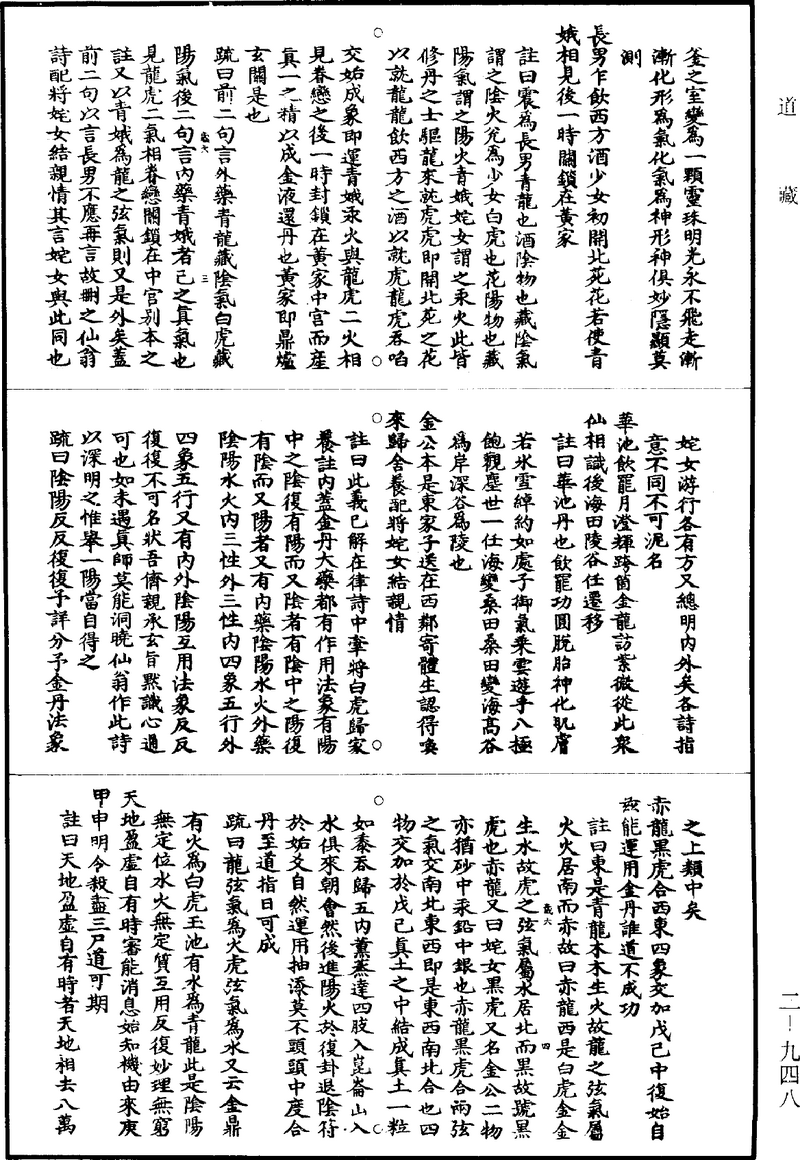 道藏
釜之室變為一顆靈珠明光永不飛走漸
漸化形為氣化氣為神形神俱妙隱顯莫
測
長男乍飲西方酒少女初開北苑花若使青
娥相見後一時關鎖在黃家
註曰震為長男青龍也酒陰物也藏陰氣
謂之陰火兌為少女白虎也花陽物也藏
陽氣謂之陽火青娥姹女謂之汞火此皆
修丹之士驅龍來就虎虎即開北苑之花
以就龍龍飲西方之酒以就虎龍虎吞啗
交姤成象即運青娥汞火與龍虎二火相
見眷戀之後一時封鎖在黃家中宮而產
真一之精以成金液還丹也黃家即鼎爐
玄關是也
疏曰前二句言外藥青龍藏陰氣白虎藏
陽氣後二句言內藥青娥者己之真氣也
見龍虎二氣相眷戀關鎖在中宮別本之
註又以青娥為龍之弦氣則又是外矣蓋
前二句以言長男不應再言故刪之仙翁
詩配將姹女結親情其言姹女與此同也
姹女游行各有方又總明內外矣各詩指
意不同不可泥名
華池飲罷月澄輝跨箇金龍訪紫微從此眾
仙相識後海田陵谷任遷移
註曰華池丹也飲罷功圓脫胎神化肌膚
若氷雪綽約如處子御氣乘雲遊乎八極
飽觀塵世一任海變桑田桑田變海高谷
為岸深谷為陵也
金公本是東家子送在西鄰寄體生認得喚
來歸舍養配將姹女結親情
註曰此義已解在律詩中牽將白虎歸家
養註內蓋金丹大藥都有作用法象有陽
中之陰復有陽而又陰者有陰中之陽復
有陰而又陽者又有內藥陰陽水火外藥
陰陽水火內三性外三性內四象五行外
四象五行又有內外陰陽互用法象反反
復復不可名狀吾儕親承玄旨默識心通
可也如未遇真師莫能洞曉仙翁作此詩
以深明之惟舉一陽當自得之
疏曰陰陽反反復復予詳分予金丹法象
之上類中矣
赤龍黑虎合西東四象交加戊己中復始自
茲能運用金丹誰道不成功
註曰東是青龍木木生火故龍之弦氣屬
火火居南而赤故曰赤龍西是白虎金金
生水故虎之弦氣屬水居北而黑故號黑
虎也赤龍又曰姹女黑虎又名金公二物
亦猶砂中汞鉛中銀也赤龍黑虎合兩弦
之氣交南北東西即是東西南北合也四
物交加於戊己真土之中結成真土一粒
如黍吞歸五內薰蒸達四肢入崑崙山入
水俱來朝會然後進陽火於復卦退陰符
於姤爻自然運用抽添莫不頭頭中度合
丹至道指日可成
疏曰龍弦氣為火虎弦氣為水又云金鼎
有火為白虎玉池有水為青龍此是陰陽
無定位水火無定質互用反復妙理無窮
天地盈虛自有時審能消息始知機由來庚
甲申明令殺盡三尸道可期
註曰天地盈虛自有時者天地相去八萬
二-九四八